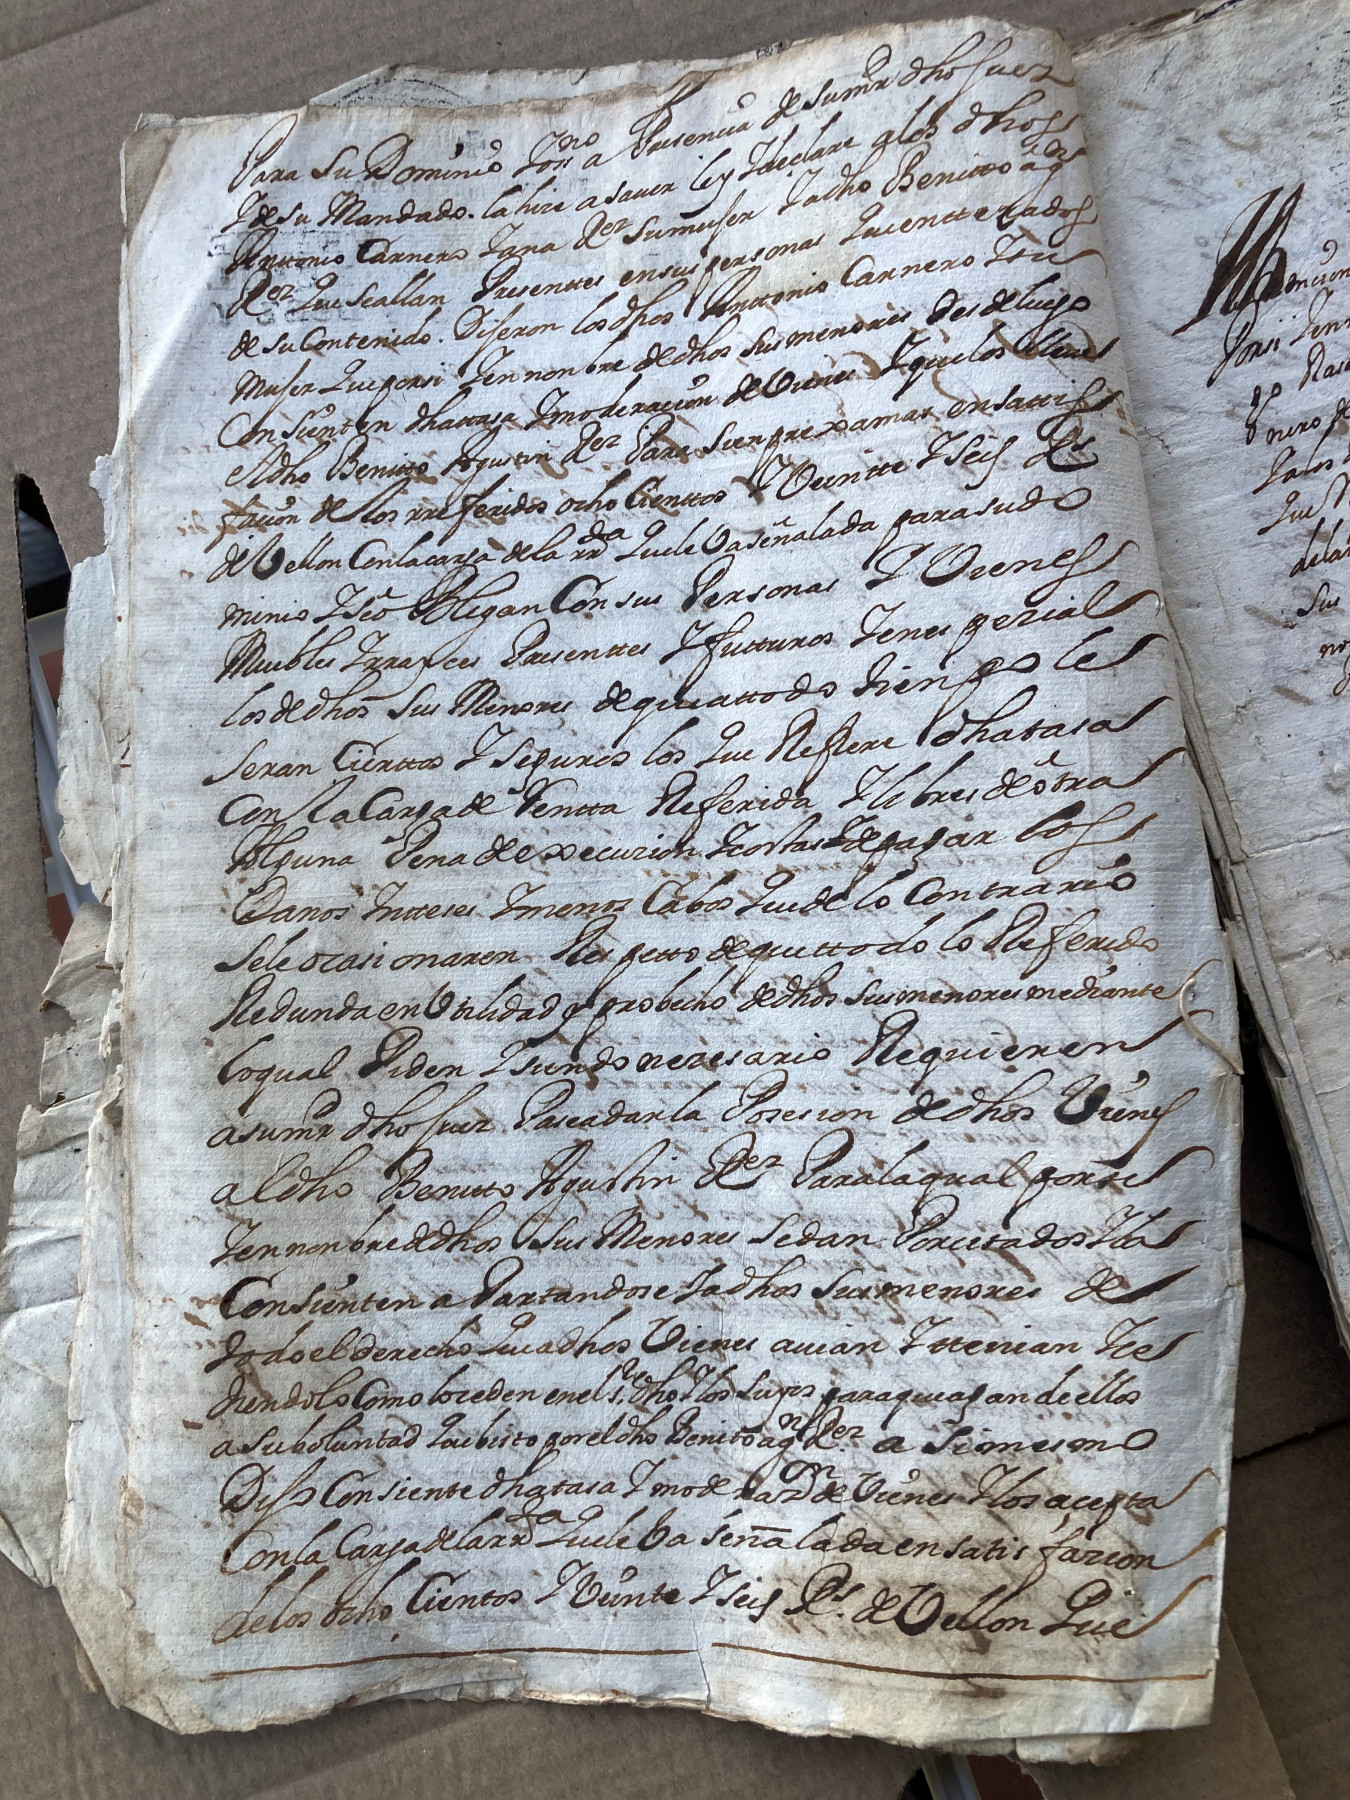 Para Su Dominio Yo ssno a Presencia de sumrd dho Juez
Y de su Mandado. la hice a saver ley Y declare a los dhos
Anttonio Carnero Y ana Rez su muger Y a dho Benitto agn
Rez Que se allan Presenttes en sus personas Que entterados
de su Contenido. Dijeron los dhos Anttonio Carnero Y su
Muger Que por si Y en nonbre de dhos sus menores des de luego
Consienten dha tasa Y moderacion de Vienes Y que los lleve
el dho Benitto Agustin Rez Para sienpre xamas en sattis
facion de los rreferidos ocho Cienttos Y Veintte Y seis Rs
de Vellon Con la carga de la rrda Que le Va señalada para su do
minio Y se Obligan Con sus Personas Y Vienes
Muebles Y rrayces Presenttes Y futturos Y en espezial
los de dhos Sus Menores de que a ttodo tienpo les
seran Cierttos Y seguros los Que Refiere dha tasa
Con la Carga de Rentta Referida Y libres de otra
Alguna Pena de execuzion Y costas Y de pagar los
Danos Ynttereses Y menos Cabos Que de lo Contrario
se le ocasionaren Respetto de que ttodo lo Referido
Redunda en Vtilidad y probecho de dhos sus menores mediante
lo qual Piden Y siendo nezesario Requieren
a sumrd dho Juez Pase a dar la Posesion de dhos Vienes
al dho Benitto Agustin Rez Para la qual por si
Y en nonbre de dhos Sus Menores se dan Por citados Y la
Consienten a Partandose Y a dhos Sus menores de
todo el derecho Que a dhos Vienes avian Y ttenian Y ce
diendolo Como lo ceden en el s.re dho Y los suyos para que agan de ellos
a su boluntad Que bisto por el dho Benito agn Rez a si mesmo
Dijo Consiente dha tasa Y moderazon de Vienes Y los acepta
Con la Carga de la rrda Que le Va señalada en satisfazion
de los ocho Cientos Y Veinte Y seis Rs. de Vellon Que